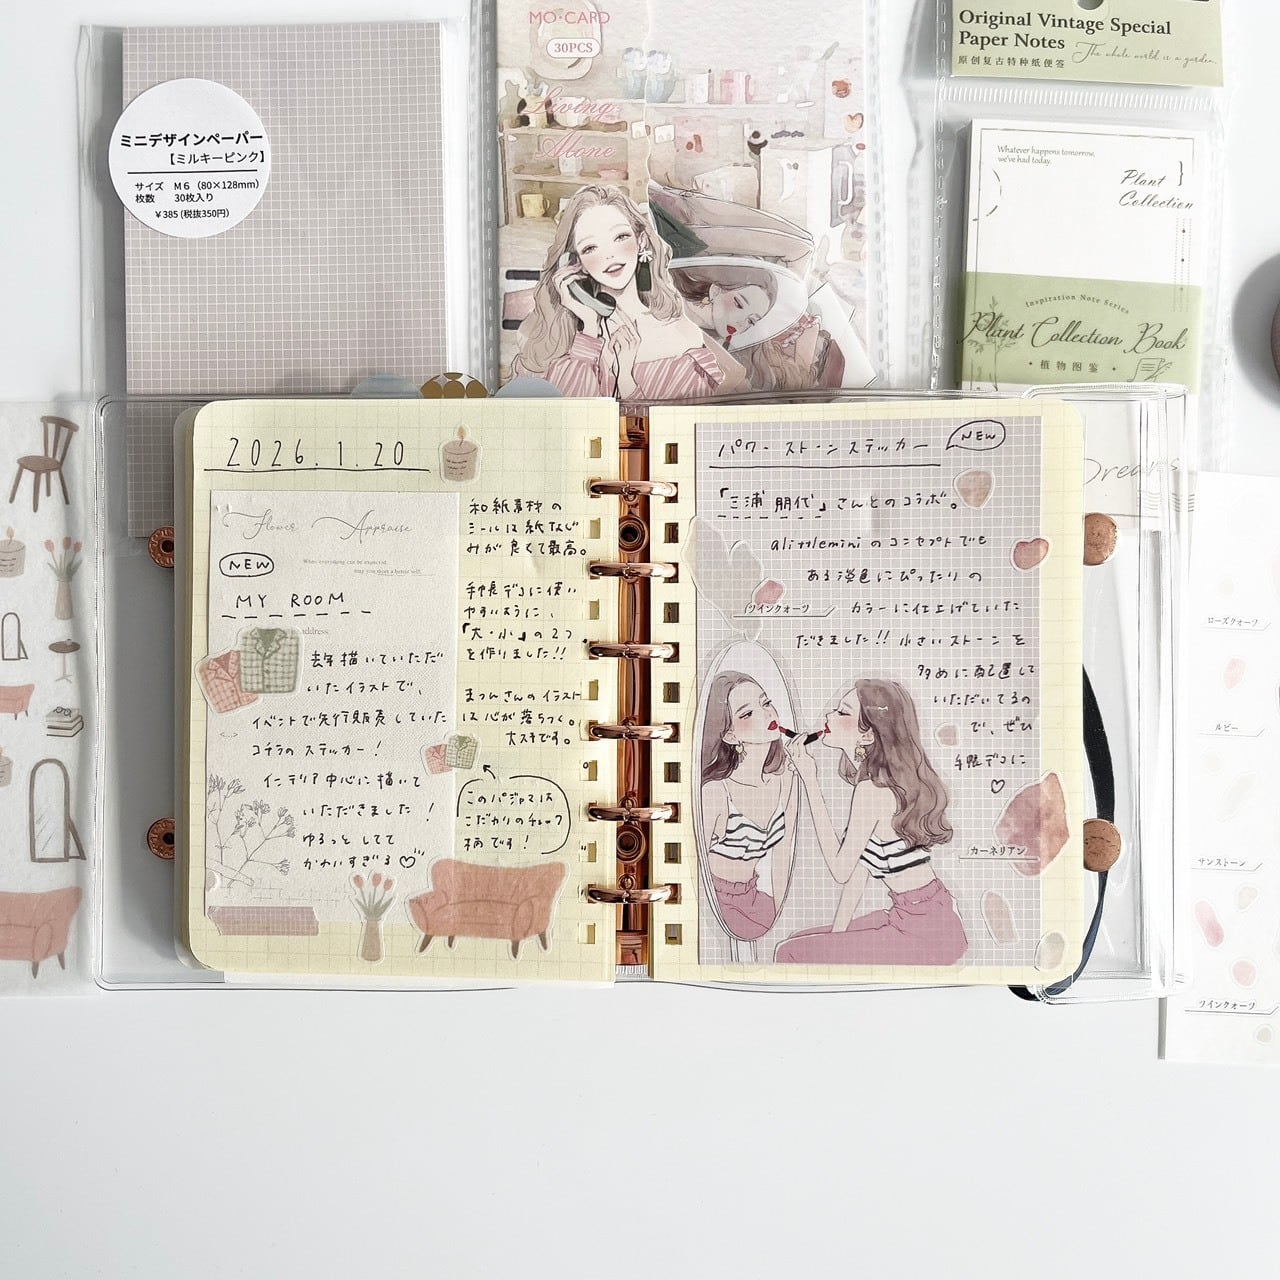 ミニデザインペーパー
【ミルキーピンク】
サイズ M6（80×128mm）
枚数 30枚入り
￥385(税抜350円)
MO·CARD
30PCS
Living
Alone
Original Vintage Special
Paper Notes
The whole world is a garden.
原创复古特种纸便签
Whatever happens tomorrow,
we've had today.
Plant
Collection
Inspiration Note Series
Plant Collection Book
植物图鉴
Dreams
2026.1.20
Flower Appraise
NEW
When everything can be expected,
may you meet a better self.
MY ROOM
address
去年描いていただ
いたイラストで、
イベントで先行販売していた
コチラのステッカー!
インテリア中心に描いて
いただきました!
ゆるっとしてて
かわいすぎる♡
和紙素材の
シールは紙なじ
みが良くて最高。
手帳デコに使い
やすいように、
「大・小」の2つ
を作りました!!
まつんさんのイラスト
は心が落ちつく。
大スキです。
このパジャマは
こだわりのチェック
柄です!
パワーストーンステッカー
NEW
「三浦朋代」さんとのコラボ。
alittleminiのコンセプトでも
ある淡色にぴったりの
ツインクォーツ
カラーに仕上げていた
だきました!!小さいストーンを
多めに配置して
いただいてるの
で、ぜひ
手帳デコに
♡
カーネリアン
ローズクォーツ
ルビー
サンストーン
ツインクォーツ